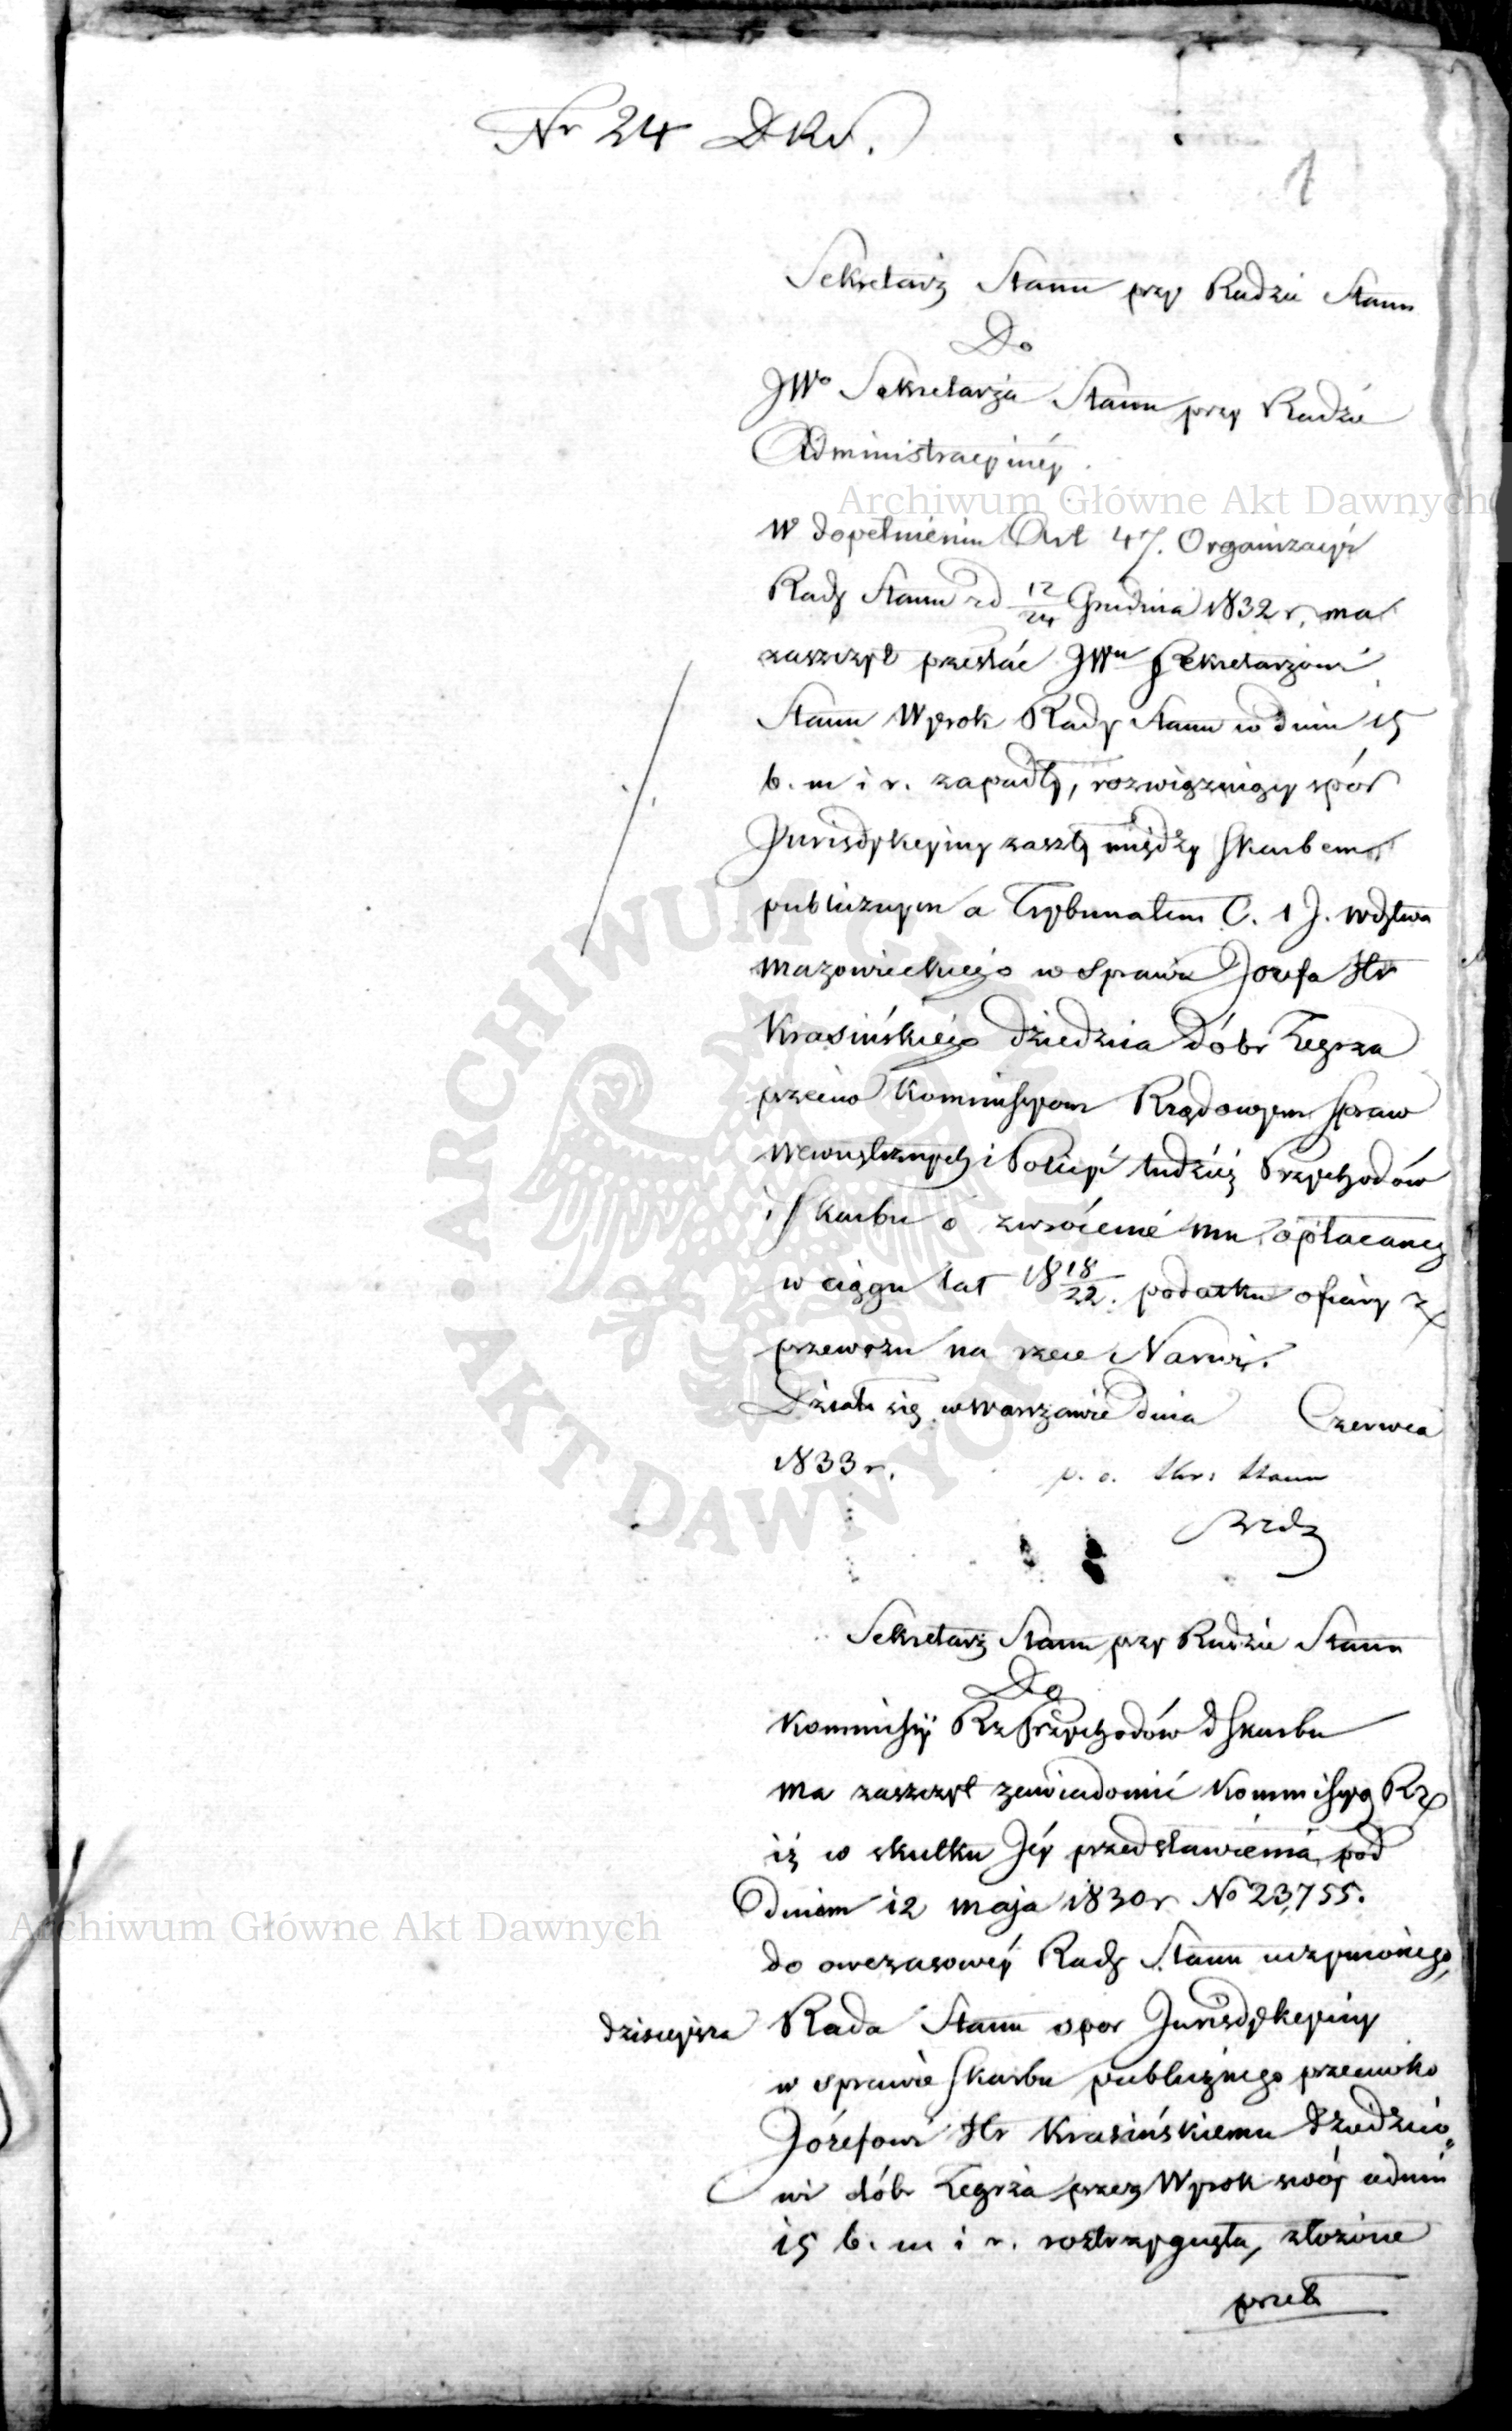 Nr 24 DRS.
1
Sekretarz Stanu przy Radzie Stanu
Do
JWo Sekretarza Stanu przy Radzie
Administracyjnéy.
Archiwum Główne Akt Dawnych
W dopełnieniu Art 47. Organizacyi
Rady Stanu z d 12/24 Grudnia 1832 r, ma
zaszczyt przesłać JWu Sekretarzowi
Stanu Wyrok Rady Stanu w dniu 15
b. m i r. zapadły, rozwiązuiący spór
Jurisdykcyiny zaszły między Skarbem
publicznym a Trybunałem C. 1 J. wdztwa
Mazowieckiego w sprawie Jozefa Hr
Krasińskiego dziedzica dóbr Zegrza
przeciwo Kommissyom Rządowym Spraw
Wewnętrznych i Policyi tudzież Przychodów
i Skarbu o zwrócenie mu opłacaney
w ciągu lat 1818/22. podatku ofiary z
przewozu na rzece Narwi.
Działo się w Warszawie dnia Czerwca
1833 r.
p. o. Skr: Stanu
ARCHIWUM GŁÓWNE AKT DAWNYCH
Sekretarz Stanu przy Radzie Stanu
Do
Kommissyi Rz Przychodów i Skarbu
ma zaszczyt zawiadomić Kommissyą Rz
iż w skutku Jéy przedstawienia pod
dniem 12 maja 1830 r No 23,755.
Archiwum Główne Akt Dawnych
do owczasowéy Rady Stanu uczynionego,
dzisieysza Rada Stanu spor Jurisdykcyiny
w sprawie Skarbu publicznego przeciwko
Józefowi Hr Krasińskiemu dziedzico„
wi dóbr Zegrza przez Wyrok swóy w dniu
15 b. m i r. rozstrzygnęła, złożone
przeto